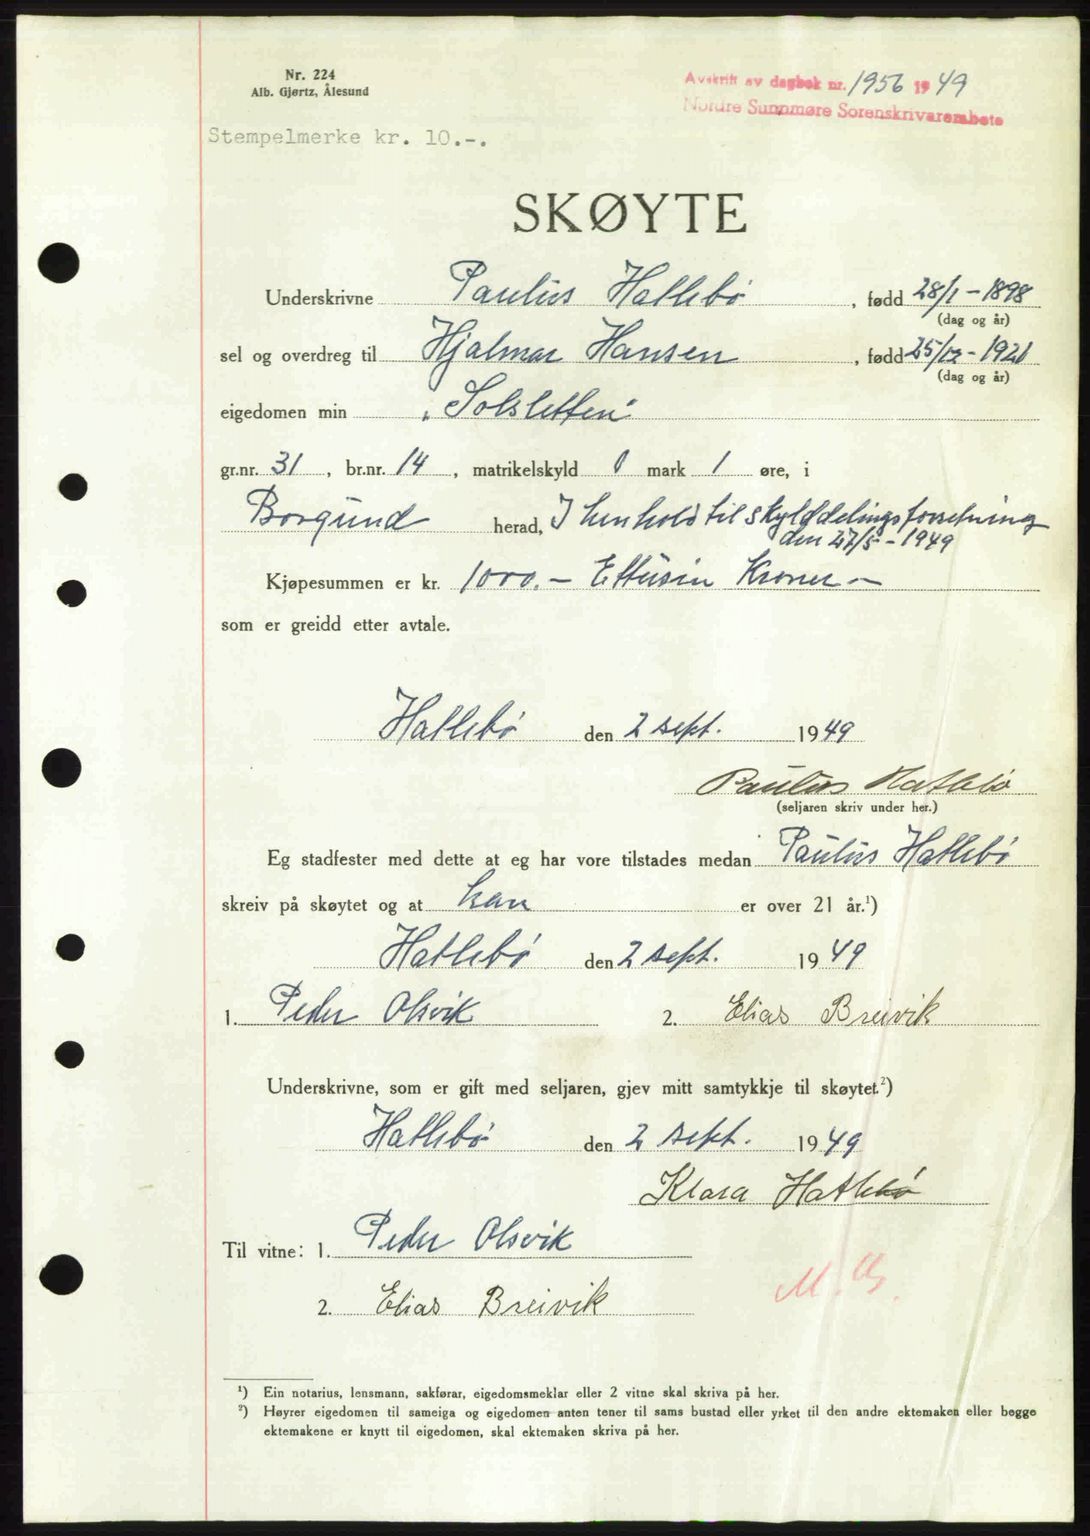 Nr. 224
Alb. Gjørtz, Ålesund
Avskrift av dagbok nr. 1956 1949
Nordre Sunnmøre Sorenskrivarembete
Stempelmerke kr. 10.-.
SKØYTE
Underskrivne Paulus Hatlebø, fødd 28/1-1898
(dag og år)
sel og overdreg til Hjalmar Hansen, fødd 25/12-1921
(dag og år)
eigedomen min „Solsletten"
gr.nr. 31, br.nr. 14, matrikelskyld 0 mark 1 øre, i
Borgund herad, I henhold til skylddelingsforretning
den 27/5-1949
Kjøpesummen er kr. 1000.- Ettusin Kroner-
som er greidd etter avtale.
Hatlebø den 2 sept. 1949
Paulus Hatlebø
(seljaren skriv under her.)
Eg stadfester med dette at eg har vore tilstades medan Paulus Hatlebø
skreiv på skøytet og at han er over 21 år.¹)
Hatlebø den 2 sept. 1949
1. Peder Olsvik 2. Elias Breivik
Underskrivne, som er gift med seljaren, gjev mitt samtykkje til skøytet.²)
Hatlebø den 2 sept. 1949
Klara Hatlebø
Til vitne: 1. Peder Olsvik
2. Elias Breivik
¹) Ein notarius, lensmann, sakførar, eigedomsmeklar eller 2 vitne skal skriva på her.
²) Høyrer eigedomen til sameiga og eigedomen anten tener til sams bustad eller yrket til den andre ektemaken eller begge
ektemakene er knytt til eigedomen, skal ektemaken skriva på her.